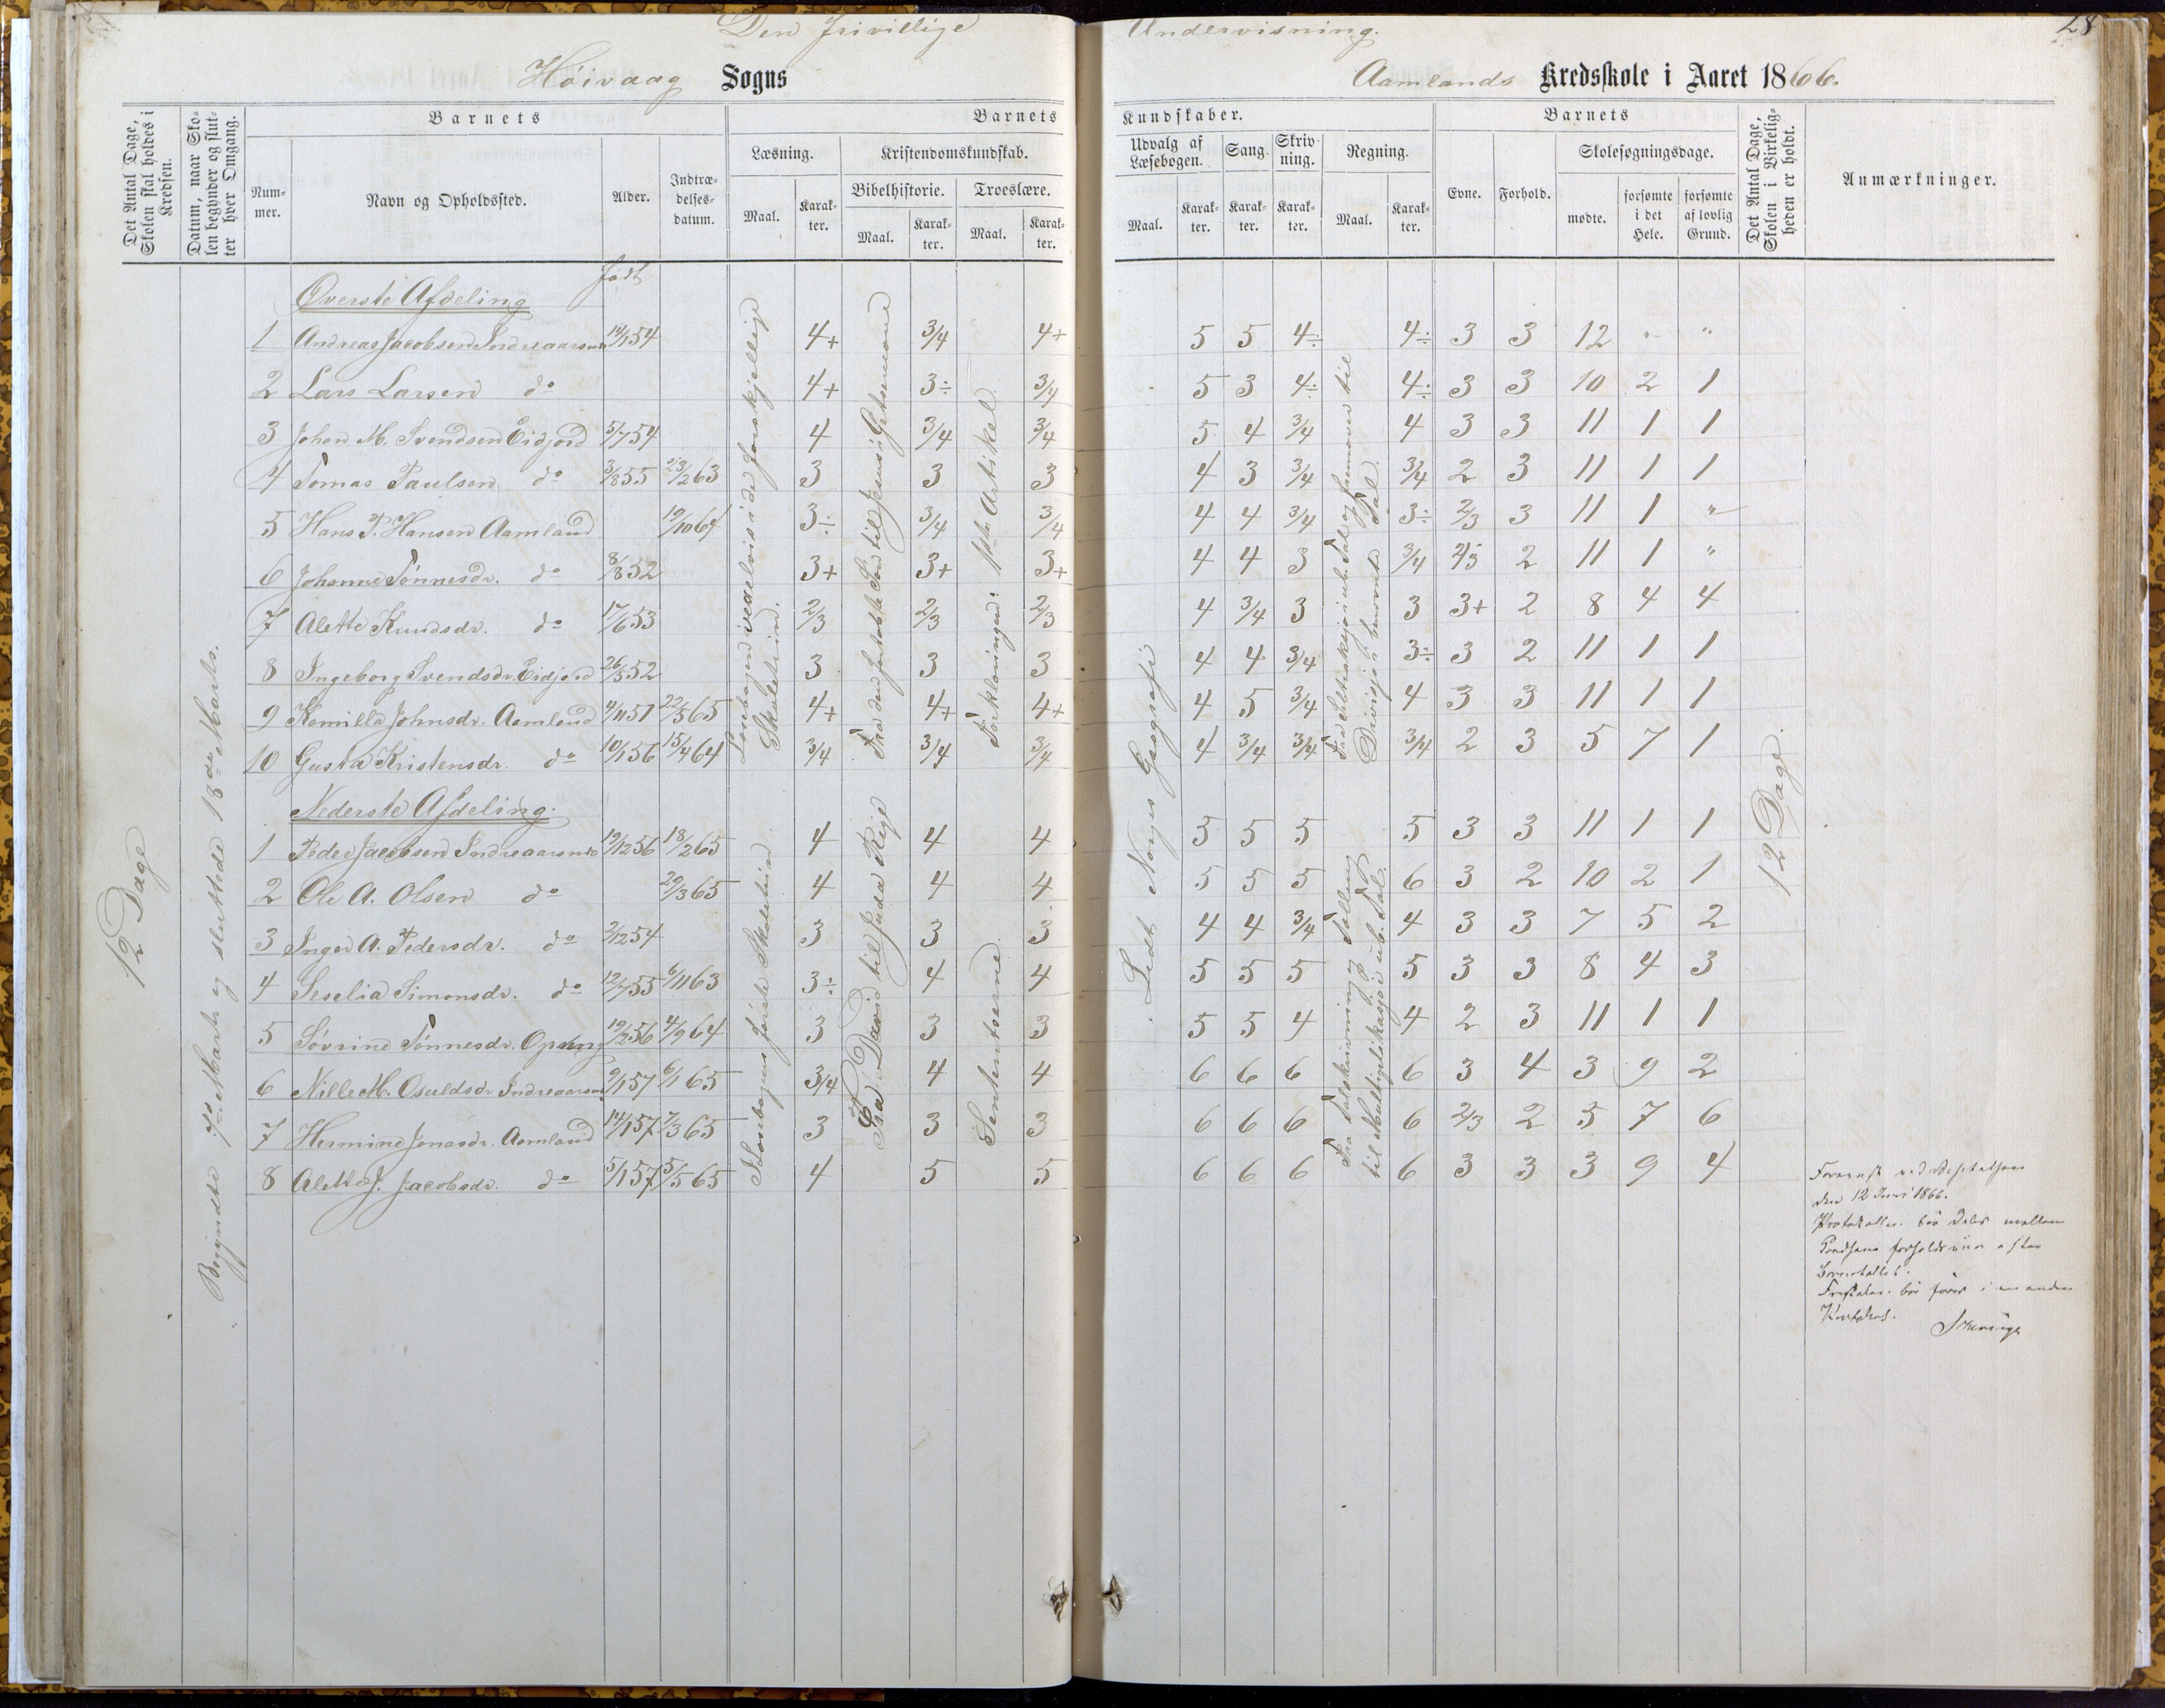 Den frivillige Undervisning. 28
Höivaag Sogns Aamlands Kredsskole i Aaret 1866.
Det Antal Dage, Skolen skal holdes i Kredsen.
Datum, naar Skolen begynder og slutter hver Omgang.
Barnets
Nummer.
Navn og Opholdssted.
Alder.
Indtrædelsesdatum.
Barnets Kundskaber.
Læsning.
Maal.
Karakter.
Kristendomskundskab.
Bibelhistorie.
Maal.
Karakter.
Troeslære.
Maal.
Karakter.
Udvalg af Læsebogen.
Maal.
Karakter.
Sang.
Karakter.
Skrivning.
Karakter.
Regning.
Maal.
Karakter.
Barnets
Evne.
Forhold.
Skolesøgningsdage.
mødte.
forsømte i det Hele.
forsømte af lovlig Grund.
Det Antal Dage, Skolen i Virkeligheden er holdt.
Anmærkninger.
12 Dage
Begyndte 7de Marts og sluttede 18de Marts.
født
Øverste Afdeling
1 Andreas Jacobsen Indreaarsnes 14/1 54 4+ 3/4 4+ 5 5 4÷ 4÷ 3 3 12 " "
2 Lars Larsen do 4+ 3÷ 3/4 5 3 4÷ 4÷ 3 3 10 2 1
3 Johan M. Svendsen Eidjord 5/7 54 4 3/4 3/4 5 4 3/4 4 3 3 11 1 1
4 Tomas Paulsen do 3/8 55 23/2 63 3 3 3 4 3 3/4 3/4 2 3 11 1 1
5 Hans P. Hansen Aamland 19/10 64 3÷ 3/4 3/4 4 4 3/4 3÷ 2/3 3 11 1 "
6 Johanne Tönnesdr. do 8/8 52 3+ 3+ 3+ 4 4 3 3/4 2/3 2 11 1 "
7 Alette Knudsdr. do 17/6 53 2/3 2/3 2/3 4 3/4 3 3 3+ 2 8 4 4
8 Ingeborg Svendsdr. Eidjord 26/5 52 3 3 3 4 4 3/4 3÷ 3 2 11 1 1
9 Kamilla Johnsdr. Aamland 4/11 51 22/5 65 4+ 4+ 4+ 4 5 3/4 4 3 3 11 1 1
10 Gusta Kristensdr. do 10/1 56 15/4 64 3/4 3/4 3/4 4 3/4 3/4 3/4 2 3 5 7 1
Læsebogen vexelvis i de forskjellige Skoletrin.
Fra den fortabte Sön til Jesus i Getsemane
Forklaringen: 1ste Artikel
Lidt Norges Geografi
Fra Subtraksjon i ub. Tal og fremover til Divisjon i benevnte Tal.
12 Dage.
Nederste Afdeling.
1 Peder Jacobsen Indreaarsnes 19/12 56 18/2 65 4 4 4 5 5 5 5 3 3 11 1 1
2 Ole A. Olsen do 29/3 65 4 4 4 5 5 5 6 3 2 10 2 1
3 Inger A. Pedersdr. do 2/12 54 3 3 3 4 4 3/4 4 3 3 7 5 2
4 Seselia Simonsdr. do 12/7 55 6/11 63 3÷ 4 4 5 5 5 5 3 3 8 4 3
5 Sövrine Tönnesdr. 19/2 56 4/9 64 3 3 3 5 5 4 4 2 3 11 1 1
6 Nille M. Osuldsdr. Indreaarsnes 9/1 57 6/1 65 3/4 4 4 6 6 6 6 3 4 3 9 2
7 Hermine Jonasdr. Aamland 14/1 57 7/3 65 3 3 3 6 6 6 6 2/3 2 5 7 6
8 Alette J. Jacobsdr. do 5/1 57 5/5 65 4 5 5 6 6 6 6 3 3 3 9 4
I Læsebogens förste Skoletrin
Fra David til Juda Rige
Sententserne.
Fra Talskrivning og Tallæsning til Multiplikasjo i ub. Tal.
den 12 Juni 1866.
Protokollen bör deles mellem Kredsene forholdsviis efter Börnetallet.
bör föres i en anden Protokol.